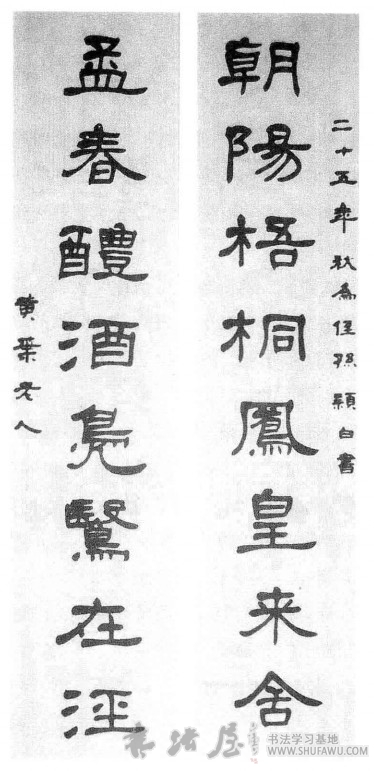 二十五年秋為侄孫穎白書
朝陽梧桐鳳皇来舍
孟春醴酒鳧鷖在涇
黄葉老人
书法屋
书法学习基地
WWW.SHUFAWU.COM